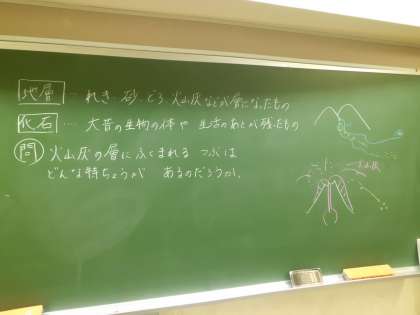 地層 … れき、砂、どろ 火山灰などが層になったもの
化石 …. 大昔の生物の体や 生活のあとが残ったもの
問 火山灰の層にふくまれる つぶは
どんな特ちょうが あるのだろうか。
火山灰